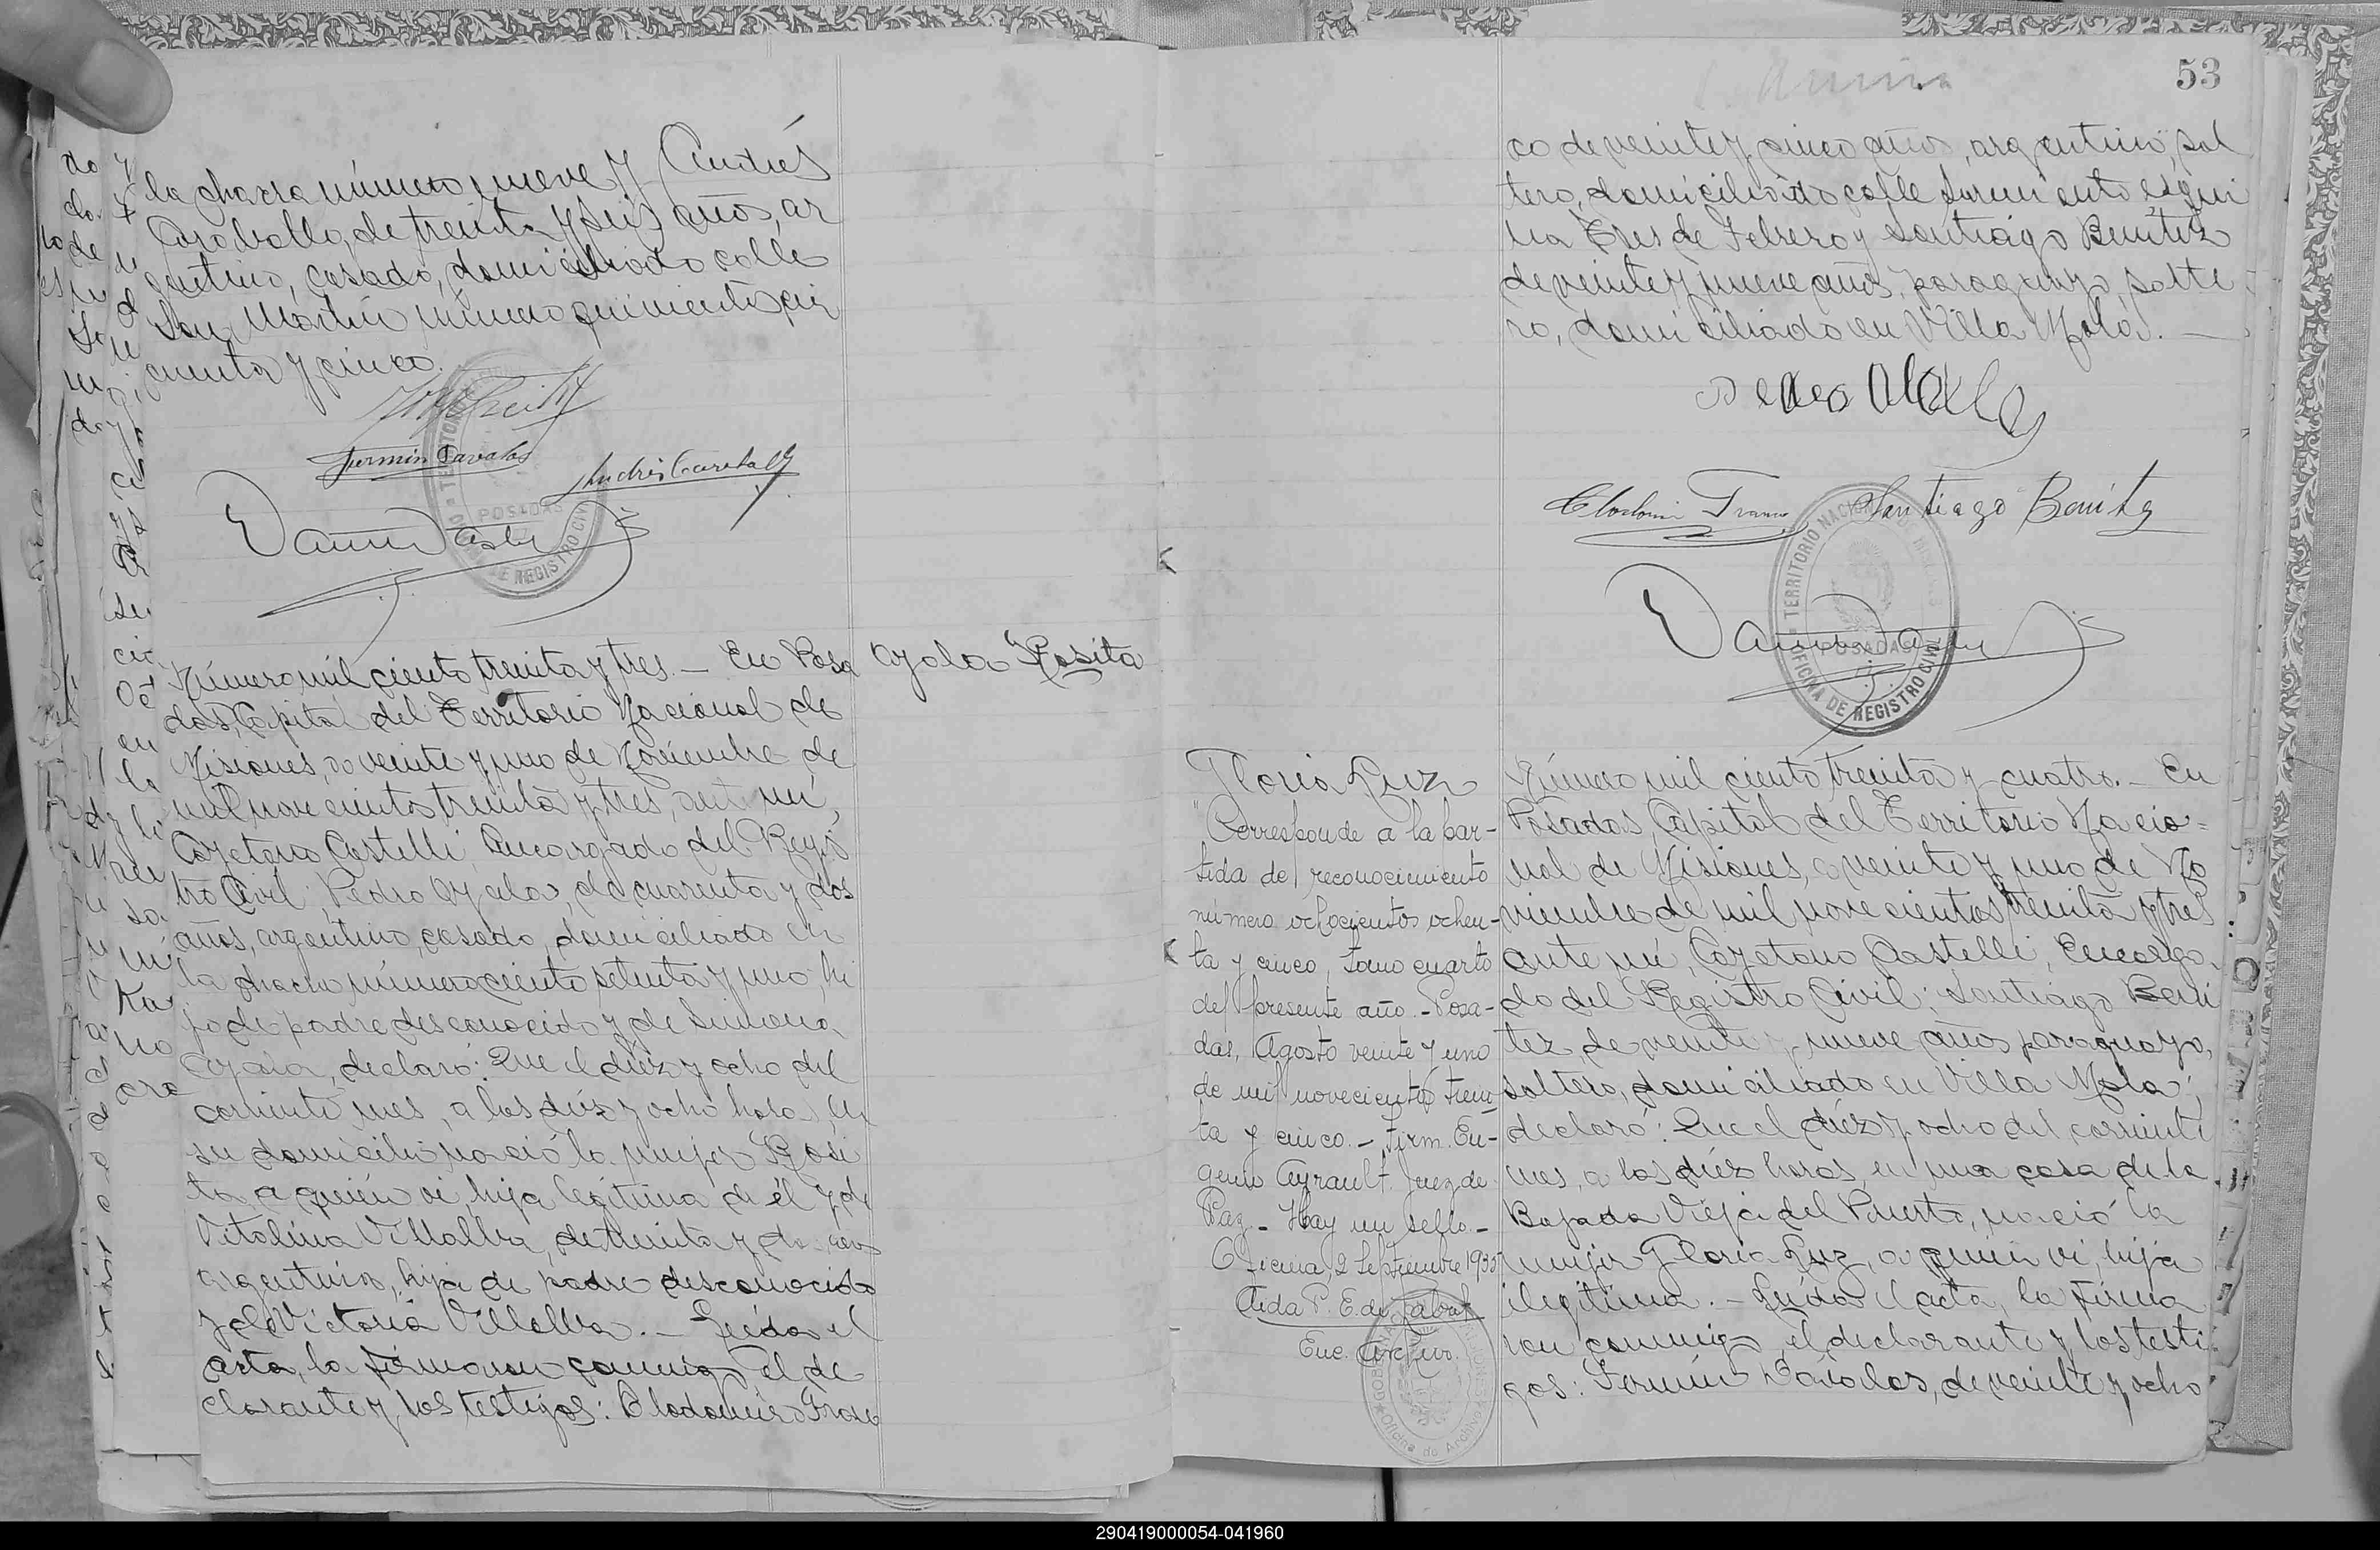 la chacra número nueve y Andrés
Caraballo, de treinta y seis años, ar
gentino, casado, domiciliado calle
San Martín número quinientos cin
cuenta y cinco.
Fermín Davalos
Andrés Caraballo
POSADAS
DE REGISTRO CIVIL
Ayala Rosita
Número mil ciento treinta y tres. — En Posa
das, Capital del Territorio Nacional de
Misiones, a veinte y uno de Noviembre de
mil novecientos treinta y tres, ante mí,
Cayetano Castelli, Encargado del Regis
tro Civil; Pedro Ayala, de cuarenta y dos
años, argentino, casado, domiciliado en
la chacra número ciento setenta y uno, hi
jo de padre desconocido y de Simona
Ayala, declaró: Que el diéz y ocho del
corriente mes, a las diéz y ocho horas, en
su domicilio nació la mujer Rosi
ta, a quién vi, hija legítima de él y de
Vitalina Villalba, de treinta y dos años
argentina, hija de padre desconocido
y de Victoria Villalba. — Leída el
acta, la firmaron conmigo el de
clarante y los testigos: Clodomiro Fran
53
co de veinte y cinco años, argentino, sol
tero, domiciliado calle Sarmiento esqui
na Tres de Febrero y Santiago Benitez
de veinte y nueve años, paraguayo, solte
ro, domiciliado en Villa Mola. —
Pedro Alalla
Clodomi Franco
Santiago Benitez
TERRITORIO NACIONAL DE MISIONES
POSADAS
OFICINA DE REGISTRO CIVIL
Gloria Luz
"Corresponde a la par-
tida de reconocimiento
número ochocientos ochen-
ta y cinco, tomo cuarto
del presente año. - Posa-
das, Agosto veinte y uno
de mil novecientos trein-
ta y cinco. - Firm. Eu-
genio Ayrault. Juez de
Paz - Hay un sello. -
Oficina, 2 Septiembre 1935
Aida P. E. de
Enc. Archivo.
Oficina de Archivo
Número mil ciento treinta y cuatro. — En
Posadas, Capital del Territorio Nacio-
nal de Misiones, a veinte y uno de No
viembre de mil novecientos treinta y tres
ante mí, Cayetano Castelli, Encarga
do del Registro Civil; Santiago Beni
tez, de veinte y nueve años, paraguayo,
soltero, domiciliado en Villa Mola;
declaró: Que el diéz y ocho del corriente
mes, a las diéz horas, en una casa de la
Bajada Vieja del Puerto, nació la
mujer Gloria Luz, a quien vi, hija
ilegítima. — Leída el acta, la firma
ron conmigo el declarante y los testi
gos: Fermín Dávalos, de veinte y ocho
290419000054-041960